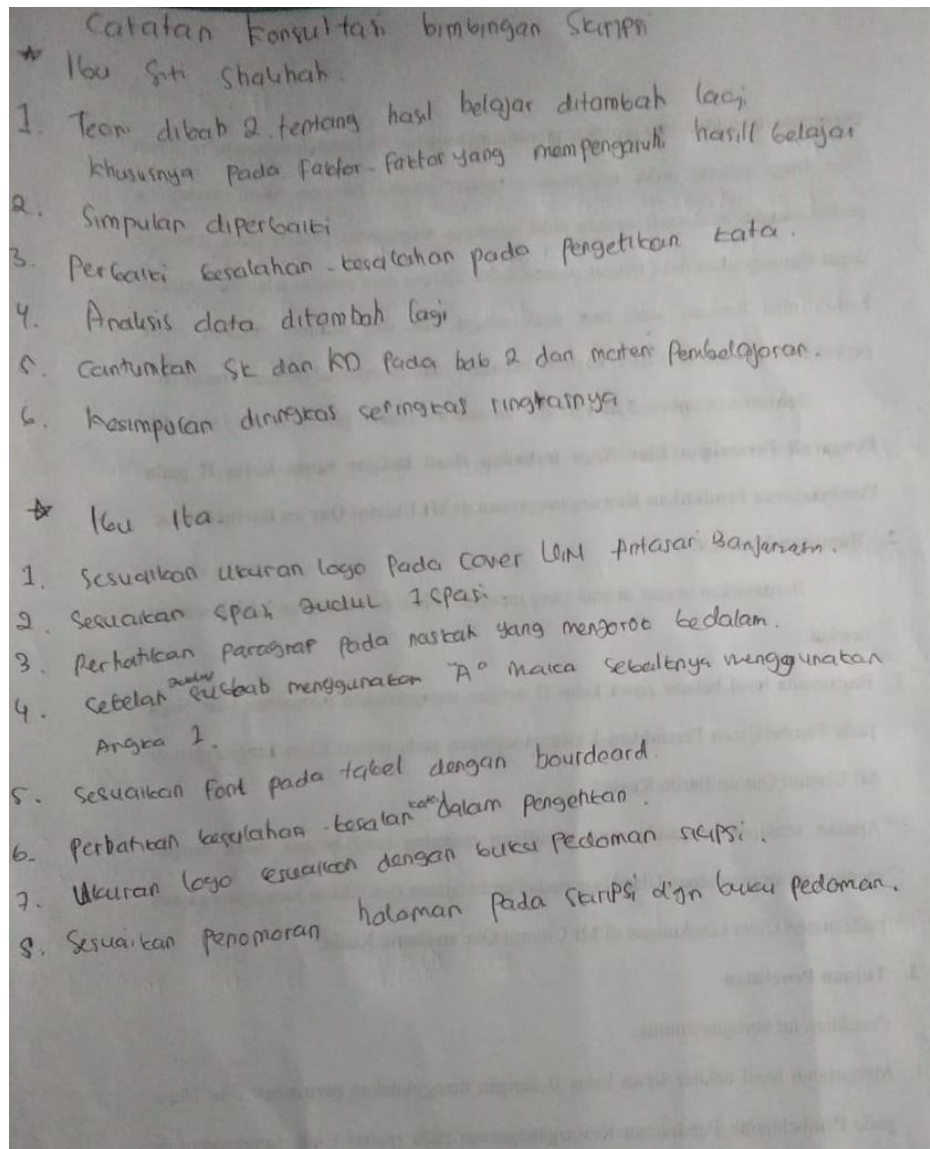 Catatan Konsultasi bimbingan Skripsi
* Ibu Siti Shalihah.
1. Teori dibab 2 tentang hasil belajar ditambah lagi
khususnya pada faktor-faktor yang mempengaruhi hasill belajar
2. Simpulan diperbaiki
3. Perbaiki kesalahan-kesalahan pada pengetikan kata.
4. Analisis data ditambah lagi
5. Cantumkan SK dan KD pada bab 2 dan materi Pembelajaran.
6. Kesimpulan diringkas seringkas ringkasnya
* Ibu Ita
1. Sesuaikan ukuran logo pada cover UIN Antasari Banjarmasin.
2. Sesuaikan spasi Judul 1 spasi.
3. Perhatikan paragrap pada naskah yang mengorok kedalam.
4. Setelah subbab menggunakan "A" maka sebaiknya menggunakan
Angka 1.
5. Sesuaikan font pada tabel dengan bourdeard.
6. Perbahkan kesalahan-kesalan kata dalam pengetikan.
7. Ukuran logo esuaikan dengan buku pedoman skripsi.
8. Sesuaikan penomoran halaman pada skripsi d'gn buku pedoman.